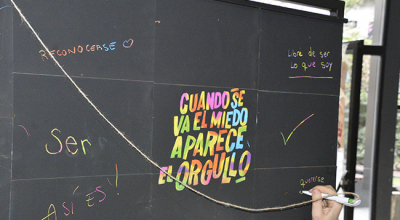 RECONOCERSE
Libre de ser
lo que soy
CUANDO SE
VA EL MIEDO
APARECE
EL ORGULLO
Ser
ASí ES!
quererse